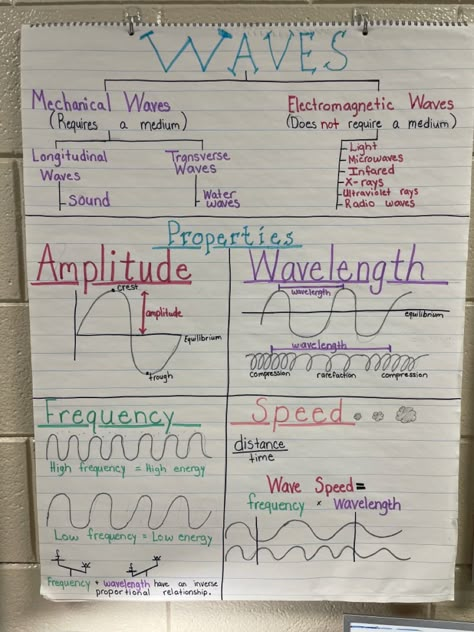 WAVES
Mechanical Waves
(Requires a medium)
Electromagnetic Waves
(Does not require a medium)
Longitudinal
Waves
Sound
Transverse
Waves
Water
waves
Light
Microwaves
Infared
X-rays
Ultraviolet rays
Radio waves
Properties
Amplitude
crest
amplitude
Equilibrium
trough
Wavelength
wavelength
equilibrium
wavelength
compression rarefaction compression
Frequency
High frequency = High energy
Low frequency = Low energy
Frequency + wavelength have an inverse
proportional relationship.
Speed
distance
time
Wave Speed=
frequency × Wavelength